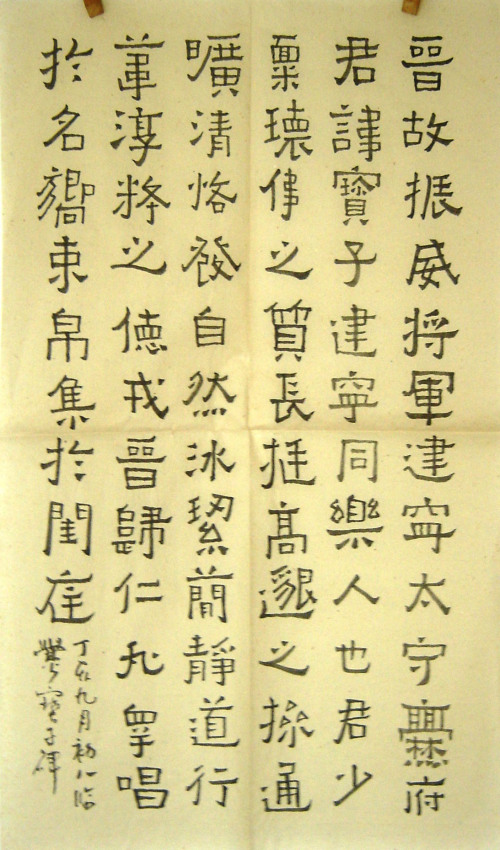 晉故振威將軍建寧太守爨府
君諱寶子建寧同樂人也君少
稟瓌偉之質長挺高邈之操通
曠清恪發自然冰絜簡靜道行
葦淳粹之德戎晉歸仁九皋唱
於名嚮束帛集於閨庭
丁亥九月初八臨
爨寶子碑